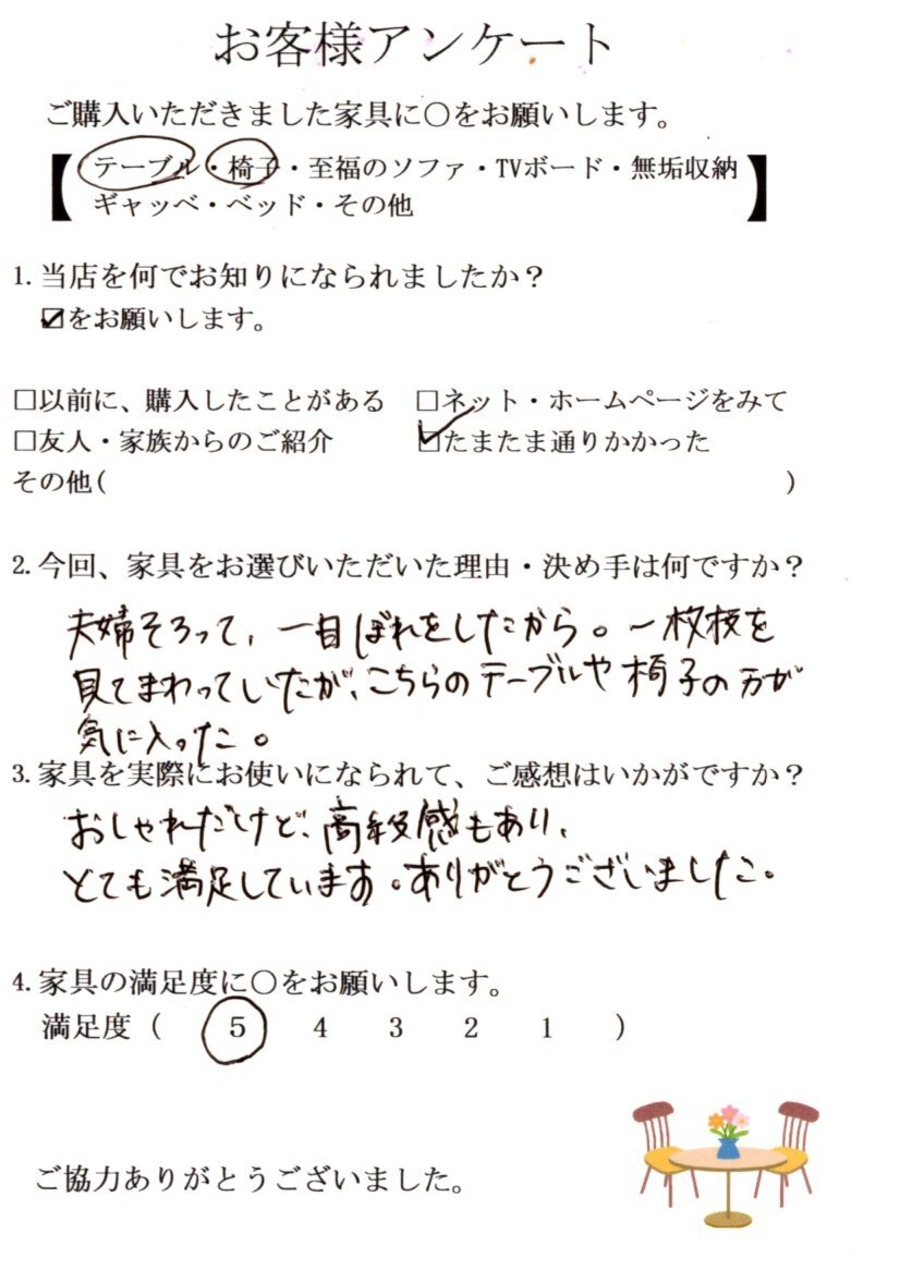 お客様アンケート
ご購入いただきました家具に○をお願いします。
【テーブル・椅子・至福のソファ・TVボード・無垢収納
ギャッベ・ベッド・その他】
1. 当店を何でお知りになられましたか？
☑をお願いします。
□以前に、購入したことがある　□ネット・ホームページをみて
□友人・家族からのご紹介　☑たまたま通りかかった
その他(　　　)
2. 今回、家具をお選びいただいた理由・決め手は何ですか？
夫婦そろって、一目ぼれをしたから。一枚板を
見てまわっていたが、こちらのテーブルや椅子の方が
気に入った。
3. 家具を実際にお使いになられて、ご感想はいかがですか？
おしゃれだけど、高級感もあり、
とても満足しています。ありがとうございました。
4. 家具の満足度に○をお願いします。
満足度（　5　4　3　2　1　）
ご協力ありがとうございました。